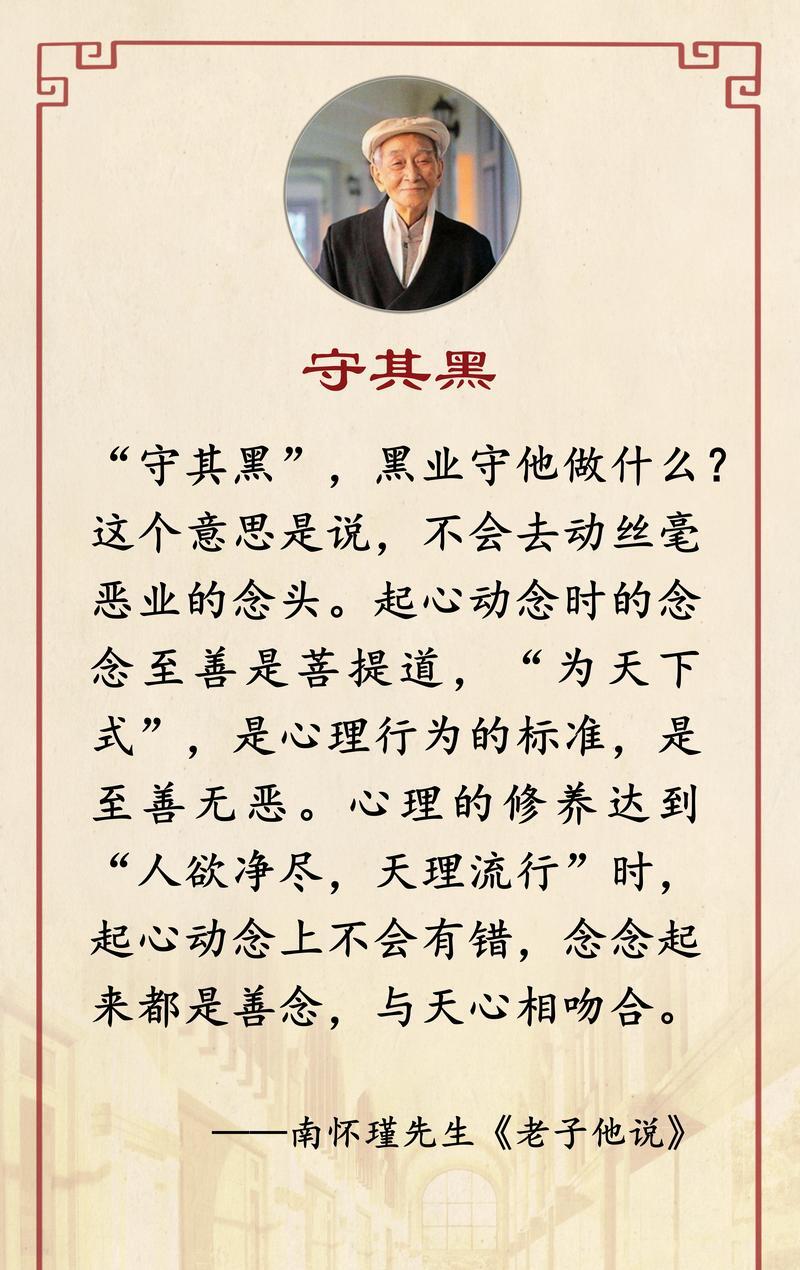 守其黑
“守其黑”，黑业守他做什么？
这个意思是说，不会去动丝毫
恶业的念头。起心动念时的念
念至善是菩提道，“为天下
式”，是心理行为的标准，是
至善无恶。心理的修养达到
“人欲净尽，天理流行”时，
起心动念上不会有错，念念起
来都是善念，与天心相吻合。
——南怀瑾先生《老子他说》